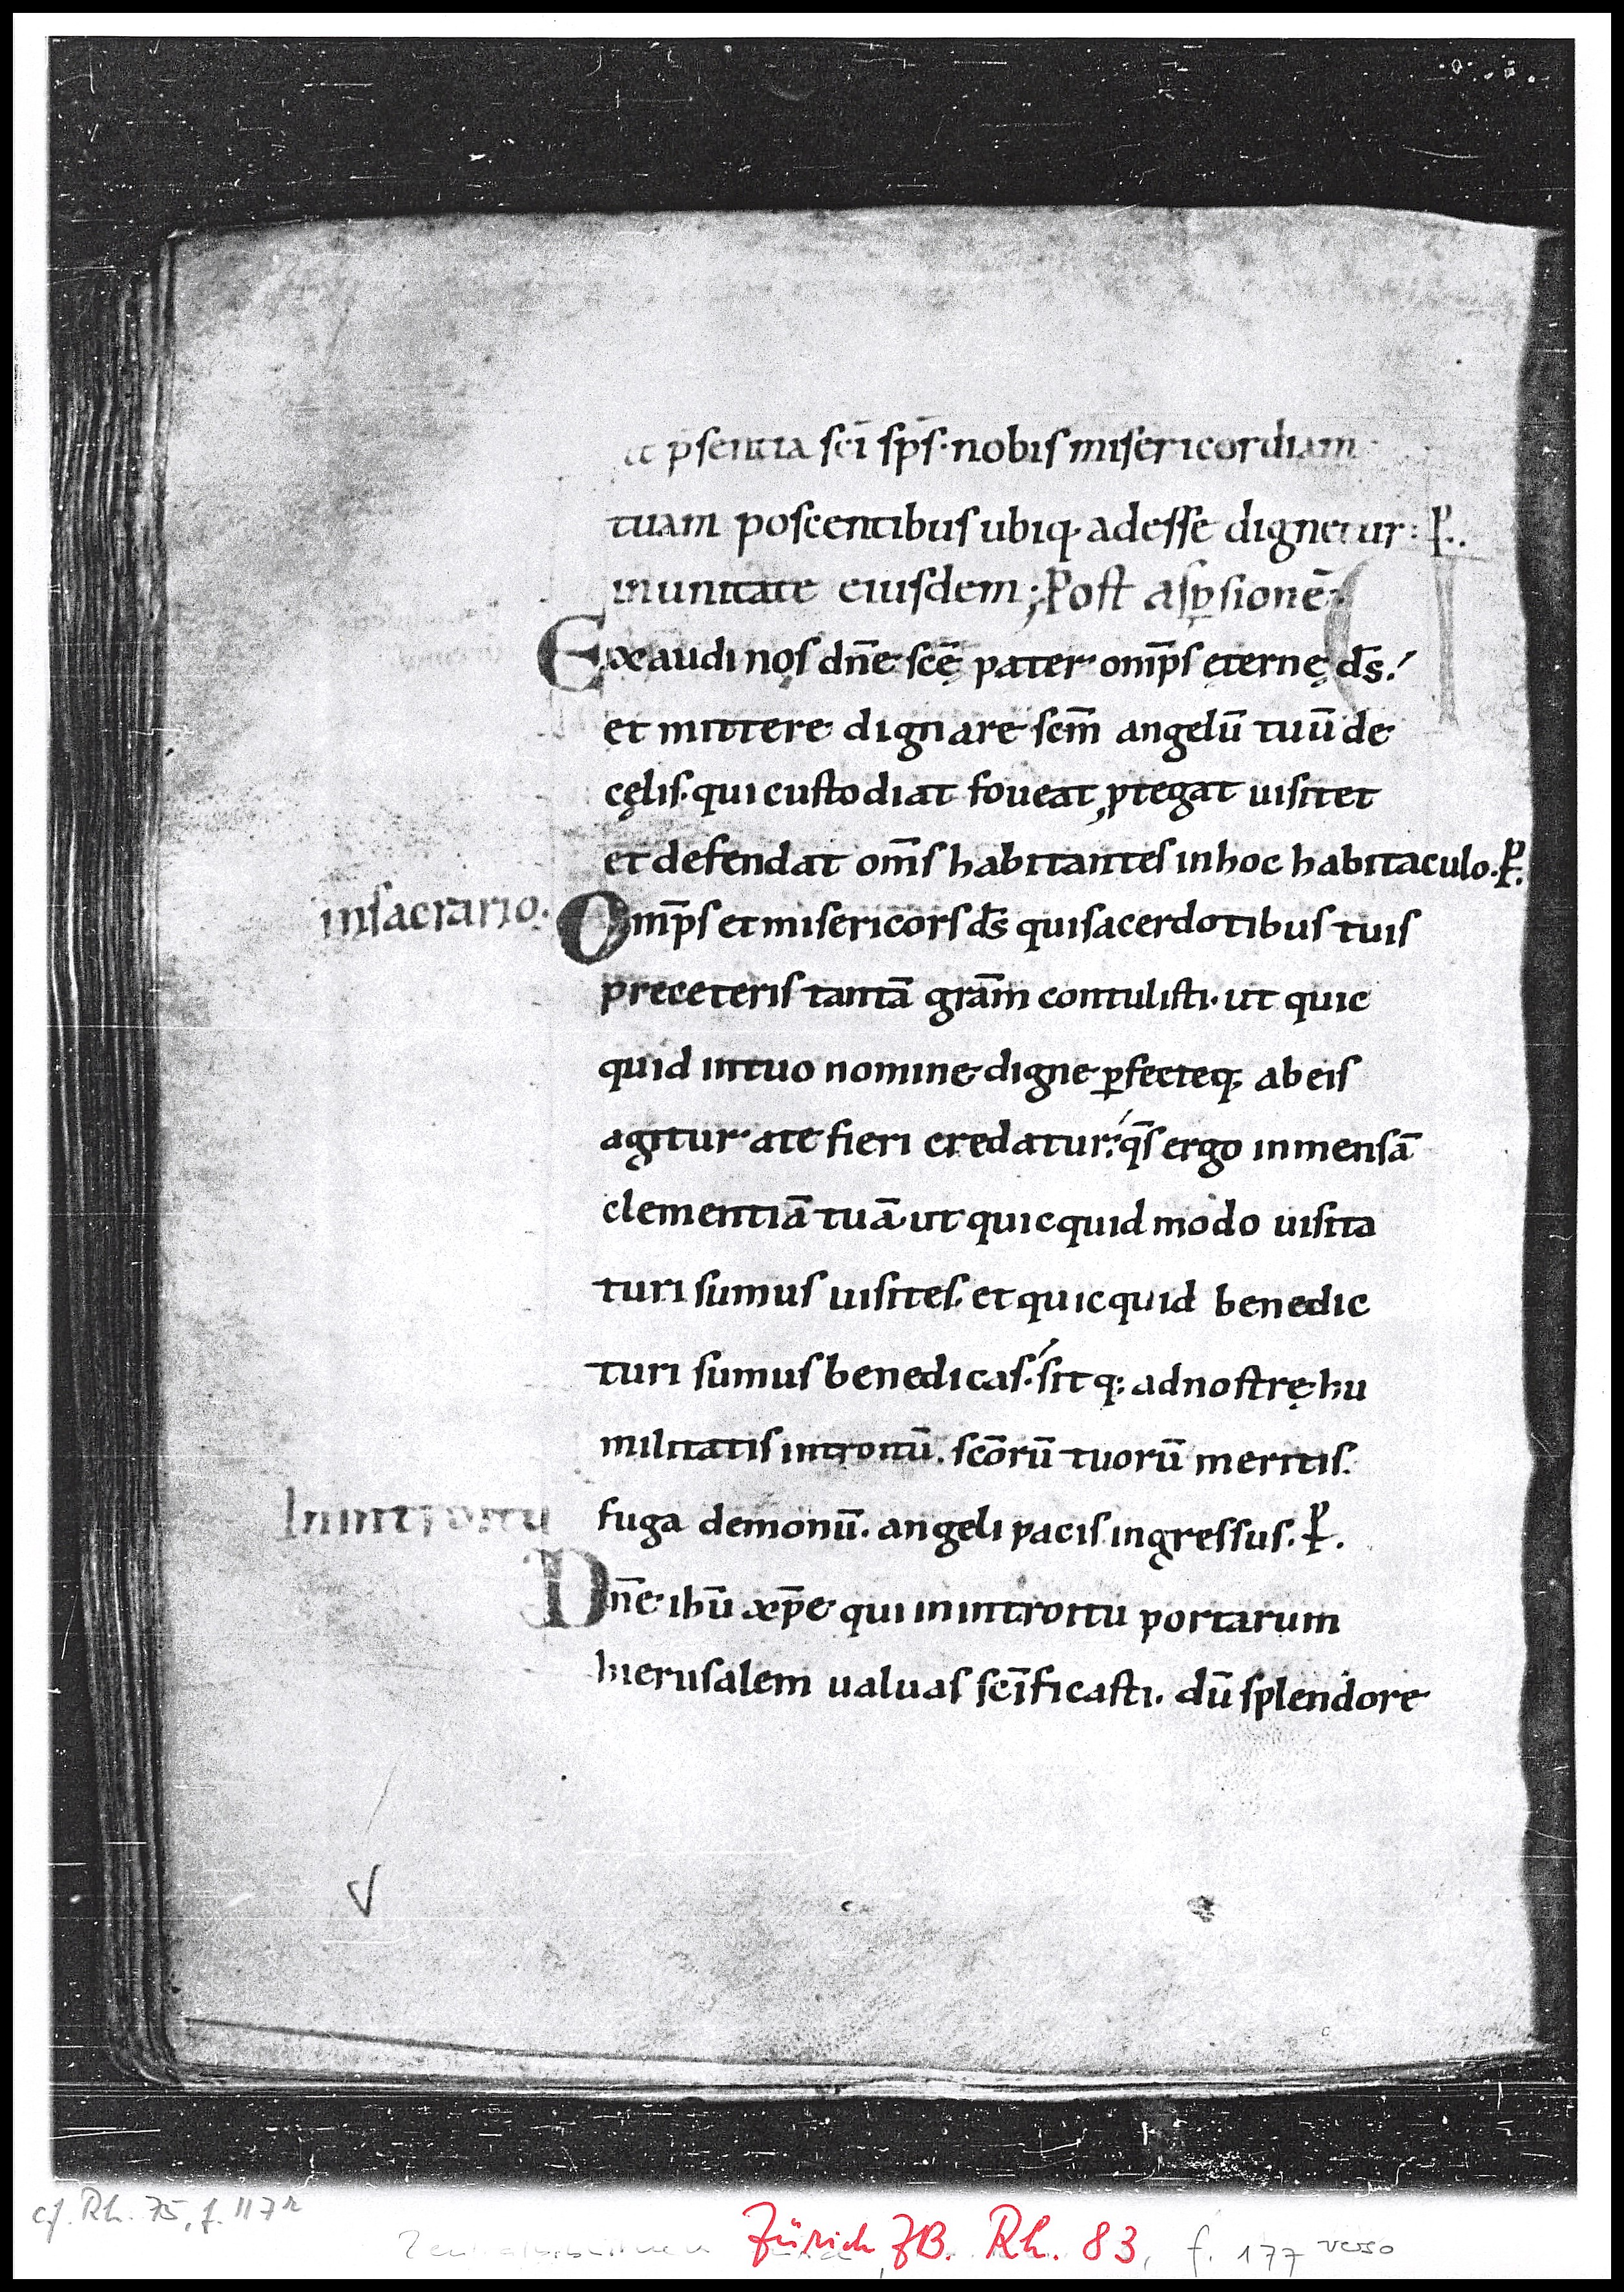 et p̄sentia sc̄i sp̄s · nobis misericordiam
tuam poscentibus ubiq· adesse dignetur : P̱.
in unitate eiusdem ; Post asp̱sionē ·
Exaudi nos dn̄e sc̄ę pater om̄ps ęternę ds̄ ;
et mittere dignare sc̄m angelū tuū de
cęlis· qui custodiat foveat, ꝓtegat uisitet
et defendat om̄s habitantes inhoc habitaculo · P̱.
insacrario·
Om̄ps et misericors ds̄ qui sacerdotibus tuis
preceteris tantā grām contulisti · ut quic
quid intuo nomine digne ꝑfecteq; ab eis
agitur ate fieri credatur ; qs̄ ergo inmensā
clementiā tuā ut quicquid modo uisita
turi sumus uisites· et quicquid benedic
turi sumus benedicas · sitq; adnostrę hu
militatis introitū. scōrū tuorū meritis.
fuga demonū. angeli pacis ingressus. P̱.
Inintroitu
Dn̄e ihū xp̄e qui inintroitu portarum
hierusalem ualuas sc̄ificasti. dū splendore
cf. Rh. 75, f. 117r
Zürich, ZB. Rh. 83, f. 177 verso